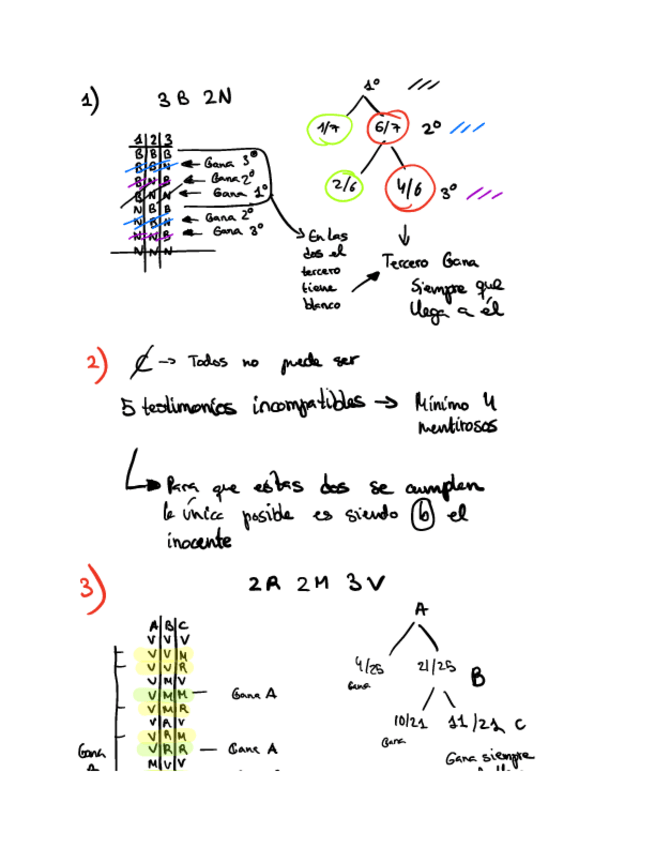 1) 3 B 2N
1 | 2 | 3
B | B | B
B | B | N ← Gana 3º
B | N | B ← Gana 2º
B | N | N ← Gana 1º
N | B | B
N | B | N ← Gana 2º
N | N | B ← Gana 3º
N | N | N
En las
dos el
tercero
tiene
blanco
1º
1/7 6/7 2º
2/6 4/6 3º
Tercero Gana
Siempre que
llega a él
2) C → Todos no puede ser
5 testimonios incompatibles → Mínimo 4
mentirosos
Para que estas dos se cumplen
la única posible es siendo b el
inocente
3) 2R 2M 3V
A | B | C
V | V | V
V | V | M
V | V | R
V | M | V
V | M | M — Gana A
V | M | R
V | R | V
V | R | M
V | R | R — Gana A
M | V | V
Gana
A
A
4/25 21/25 B
Gana
10/21 11/21 C
Gana
Gana siempre